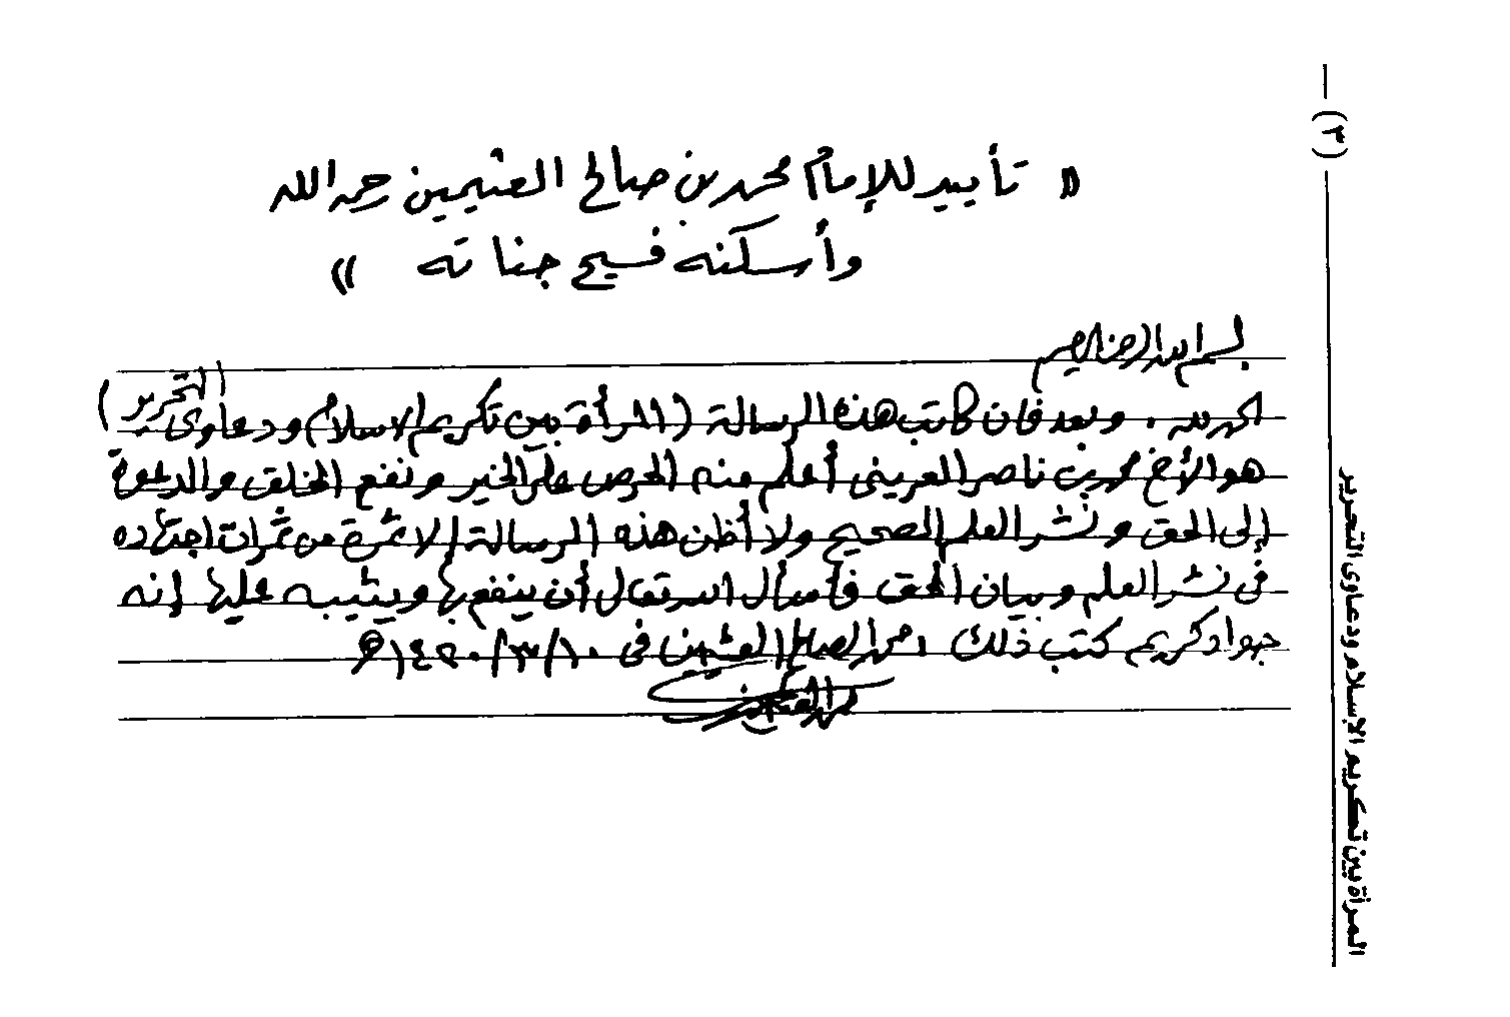 (٣)
المرأة بين تكريم الإسلام ودعاوى التحرير
« تأييد للإمام محمد بن صالح العثيمين رحمه الله
وأسكنه فسيح جناته »
بسم الله الرحمن الرحيم
الحمد لله . وبعد فإن كاتب هذه الرسالة ( المرأة بين تكريم الاسلام ودعاوى التحرير )
هو الأخ محمد بن ناصر العريني أعلم منه الحرص على الخير ونفع الخلق والدعوة
إلى الحق ونشر العلم الصحيح ولا أظن هذه الرسالة إلا ثمرة من ثمرات اجتهاده
في نشر العلم وبيان الحق فأسأل الله تعالى أن ينفع بها ويثيبه عليها إنه
جواد كريم كتب ذلك محمد الصالح العثيمين في ١٠/٣/١٤٢٠هـ
محمد العثيمين